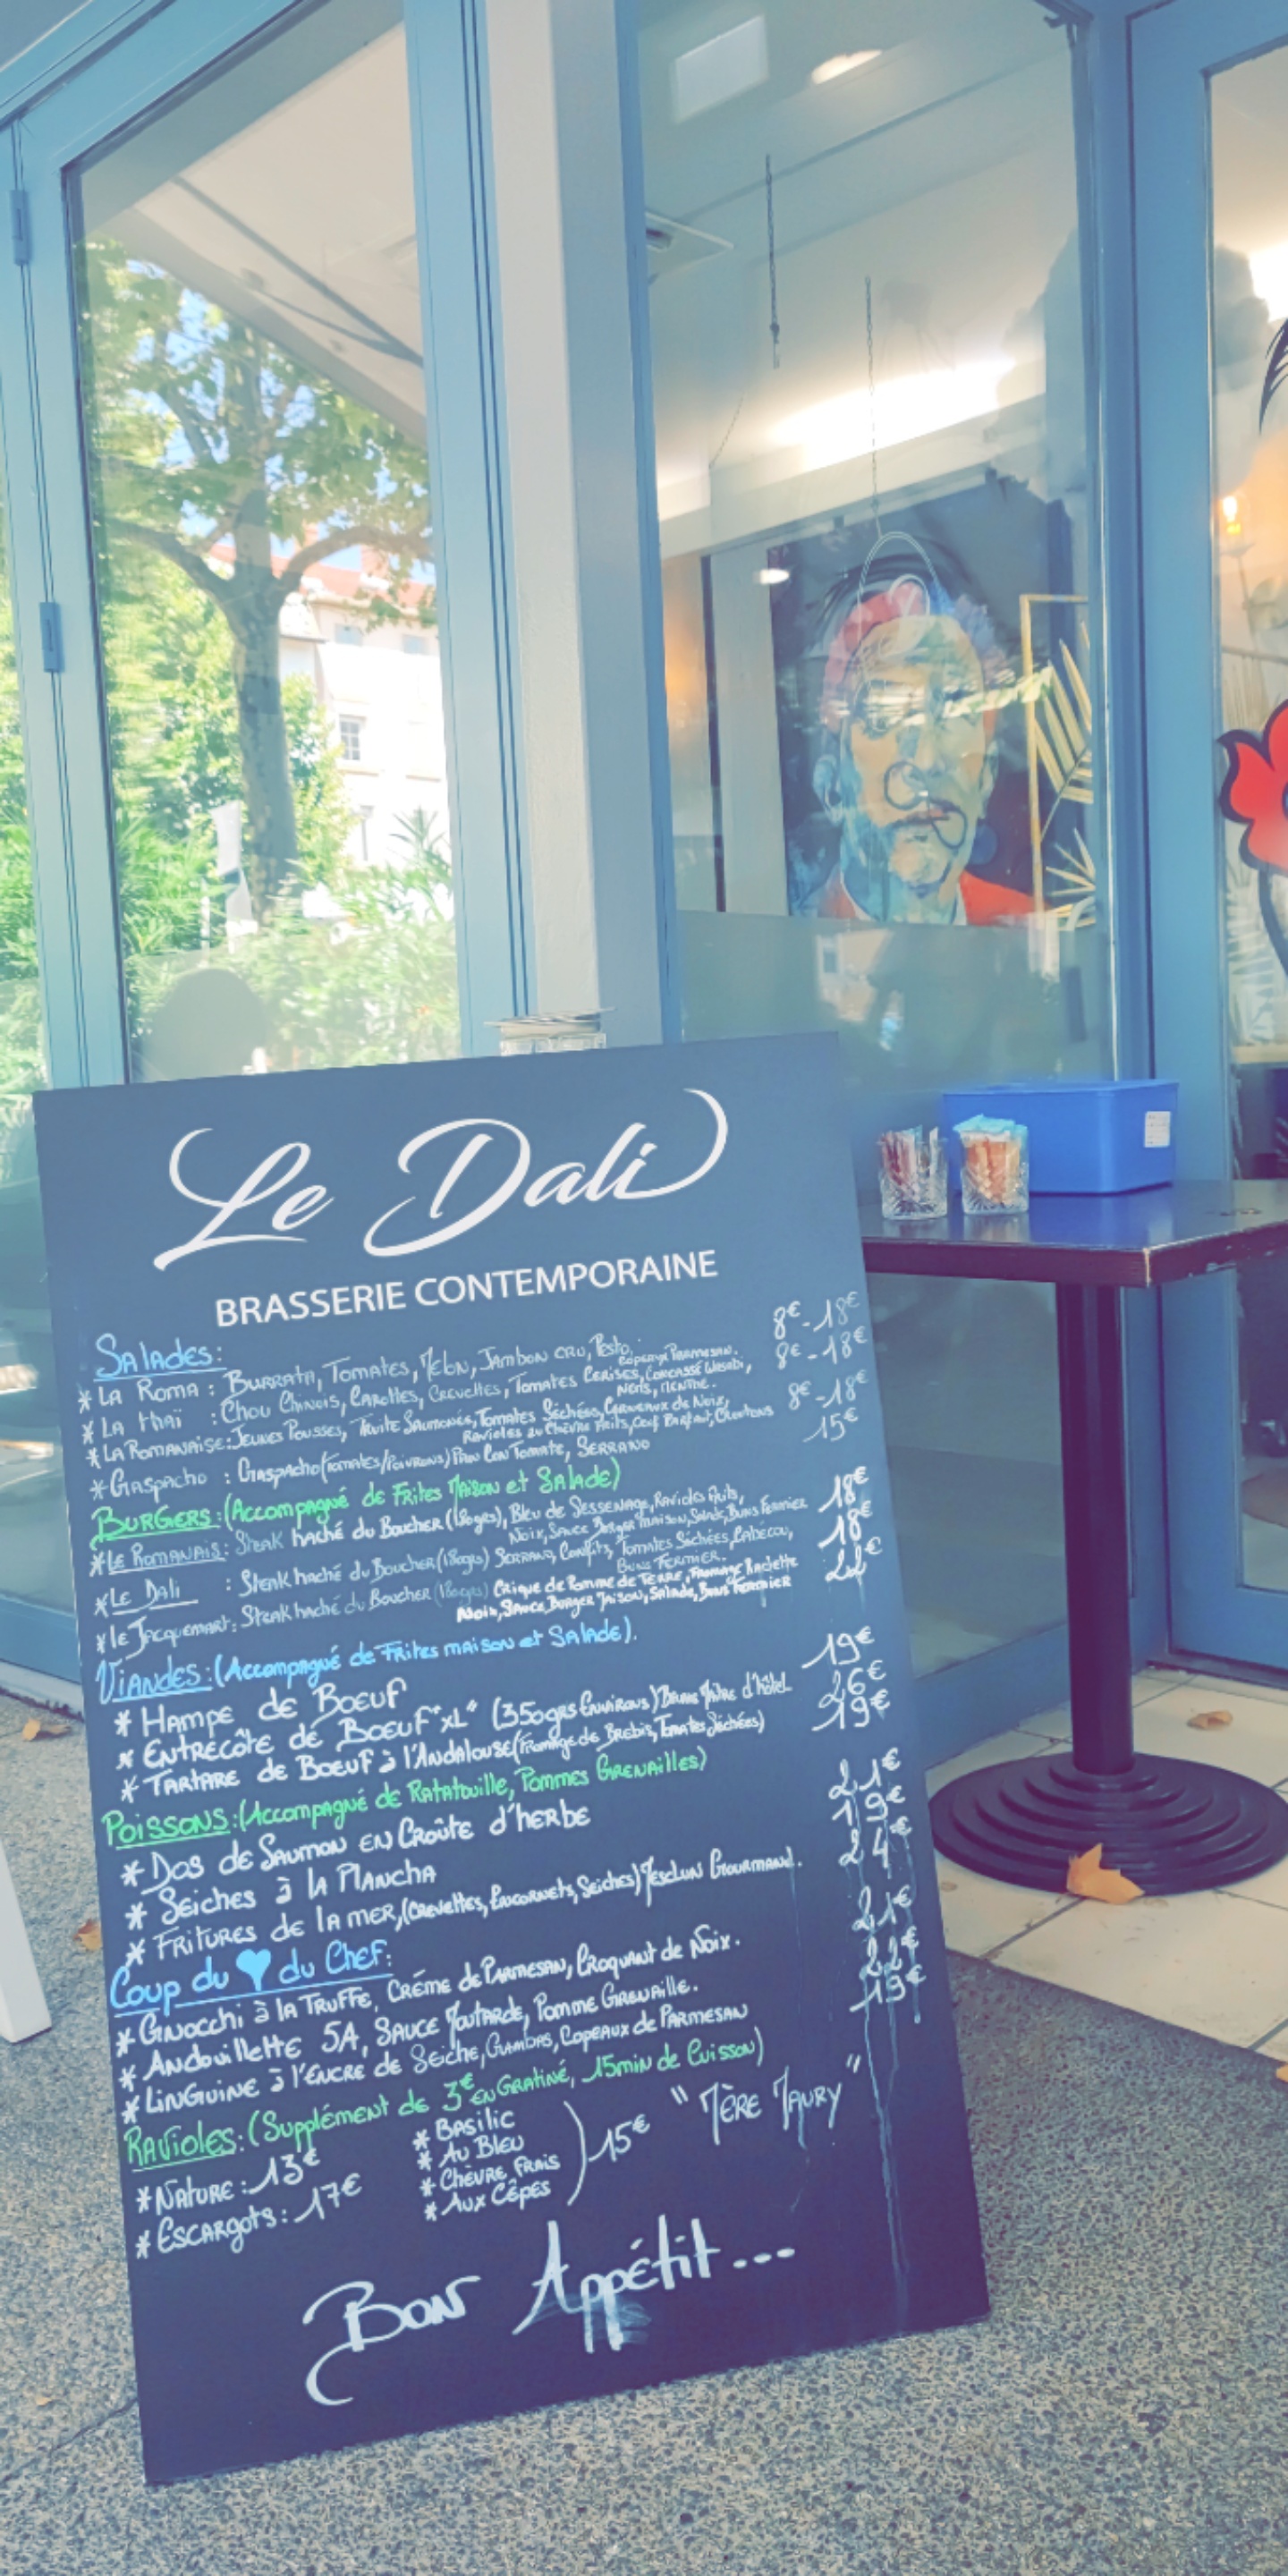 Le Dali
BRASSERIE CONTEMPORAINE
Salades:
* La Roma : Burrata, Tomates, Melon, Jambon cru, Pesto, 8€-18€
Copeaux Parmesan.
* La thaï : Chou Chinois, Carottes, Crevettes, Tomates Cerises, Concassé Wasabi, 8€-18€
Nems, Menthe.
* La Romanaise: Jeunes Pousses, Truite Saumonée, Tomates Séchées, Cerneaux de Noix, 8€-18€
Ravioles au Chèvre Frits, Oeuf Parfait, Croutons
* Gaspacho : Gaspacho (tomates/Poivrons) Pan Con Tomate, Serrano 15€
Burgers: (Accompagné de Frites Maison et Salade)
* Le Romanais: Steak haché du Boucher (180grs), Bleu de Sassenage, Ravioles frits, 18€
Noix, Sauce Burger Maison, Salade, Buns Fermier
* Le Dali : Steak haché du Boucher (180grs) Serrano, Confits, Tomates Séchées, Cabécou, 18€
Buns Fermier.
* le Jacquemart: Steak haché du Boucher (180grs) Crique de Pomme de Terre, Fromage Raclette 22€
Noix, Sauce Burger Maison, Salade, Buns Fermier
Viandes: (Accompagné de Frites maison et Salade).
* Hampe de Boeuf 19€
* Entrecôte de Boeuf "XL" (350grs Environs) Beurre Maitre d'hôtel 26€
* Tartare de Boeuf à l'Andalouse (Fromage de Brebis, Tomates Séchées) 19€
Poissons: (Accompagné de Ratatouille, Pommes Grenailles)
* Dos de Saumon en Croûte d'herbe 21€
* Seiches à la Plancha 19€
* Fritures de la mer, (Crevettes, Encornets, Seiches) Mesclun Gourmand. 24€
Coup du ♥ du Chef:
* Gnocchi à la Truffe, Crème de Parmesan, Croquant de Noix. 21€
* Andouillette 5A, Sauce Moutarde, Pomme Grenaille. 22€
* Linguine à l'encre de Seiche, Gambas, Copeaux de Parmesan 19€
Ravioles: (Supplément de 3€ en Gratiné, 15min de Cuisson)
* Nature: 13€
* Escargots: 17€
* Basilic
* Au Bleu
* Chèvre Frais
* Aux Cèpes
15€
"Mère Maury"
Bon Appétit...